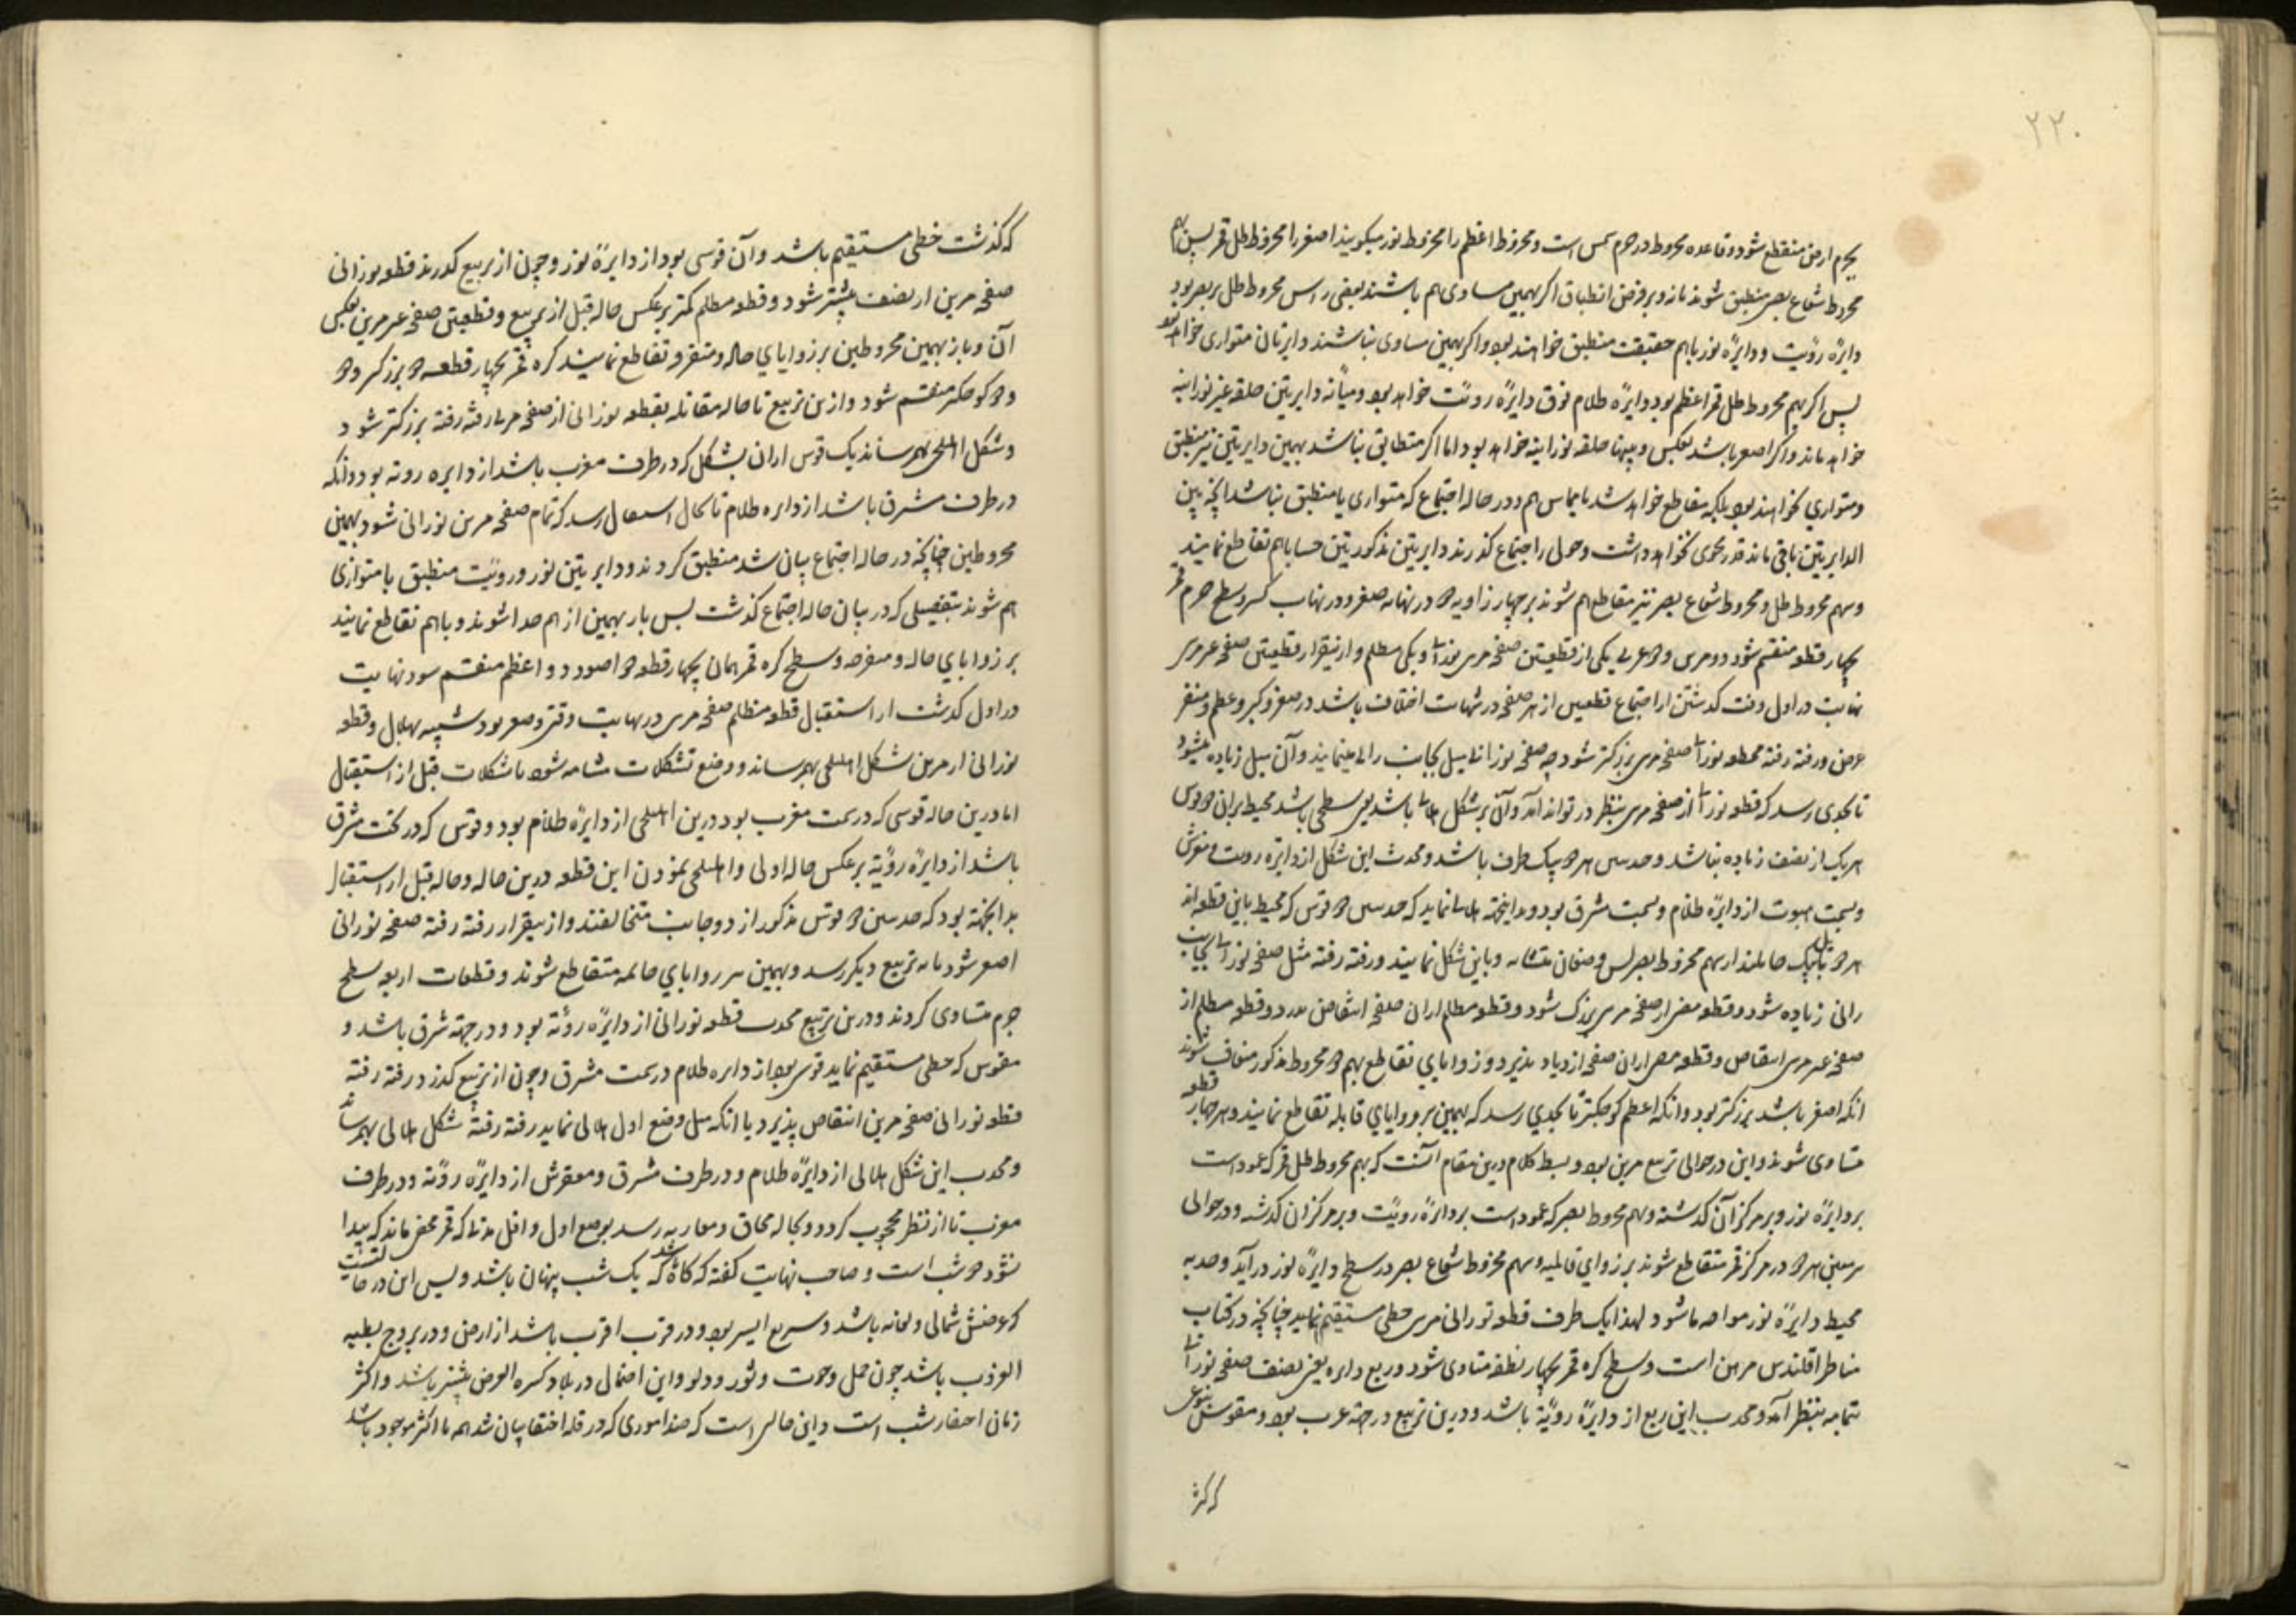 ۲۲۰
بجرم ارض منقطع شود و قاعده مخروط در جرم شمس است و مخروط اعظم را مخروط نور میکویند اصغر را مخروط ظل قمر پس
مخروط شعاع بصر منطبق شوند یا نه و بر فرض انطباق اکر سهمین مساوی هم باشند یعنی راس مخروط ظل بر بصر بود
دایرهٔ رؤیت و دایرهٔ نور باهم حقیقت منطبق خواهند بود و اکر سهمین مساوی نباشند دایرتان متوازی خواهد بود
پس اکر سهم مخروط ظل قمر اعظم بود دایرهٔ ظلام فوق دایرهٔ رویت خواهد بود و میانه دایرتین حلقه غیر نورانیه
خواهد ماند و اکر اصغر باشد بعکس و بینها حلقه نورانیه خواهد بود اما اکر متطابق نباشد سهمین دایرتین نیز منطبق
و متوازی نخواهند بود بلکه متقاطع خواهد شد یا مماس هم و در حاله اجتماع که متوازی یا منطبق نباشد آنچه بین
الدایرتین باقی ماند قدر محوی نخواهد داشت و چون از اجتماع کذرند دایرتین مذکورتین حسا باهم تقاطع نمایند
و سهم مخروط ظل و مخروط شعاع بصر نیز متقاطع هم شوند بر چهار زاویه در نهایت صغر و در نهایت کبر و سطح جرم قمر
بچهار قطعه منقسم شود دو مرئی و دو غیر مرئی یکی از قطعتین صفحه مرئی نورانی و یکی مظلم و از نیقرار قطعتین صفحه غیر مرئی
نهایت در اول وقت کذشتن از اجتماع قطعتین از هر صفحه در نهایت اختلاف باشد در صغر و کبر و عظم و صغر
عرض و رفته رفته قطعه نورانی صفحه مرئی بزرکتر شود چه صفحه نورانی میل بجانب رائی مینماید و آن میل زیاده میشود
تا بحدی رسد که قطعه نورانی از صفحه مرئی بنظر در تواند آمد و آن بر شکل هلالی باشد یعنی سطحی باشد محیط بر آن دو قوس
هریک از نصف زیاده نباشد و حدبتین هر دو بیک طرف باشد و محدب این شکل از دایره رویت و مقعرش
و بسمت از دایرهٔ ظلام و بسمت مشرق بود و بدینجهته هلالی نماید که حدبتین دو قوس که محیط باین قطعه اند
هر دو بیک مایلند از سهم مخروط بصر پس و باین شکل نمایند و رفته رفته مثل صفحه نورانی بجانب
رائی زیاده شود و قطعه مضی از صفحه مرئی بزرک شود و قطعه مظلم از ان صفحه انتقاص پذیرد و قطعه مظلم از
صفحه غیر مرئی انتقاص و قطعه مضی از ان صفحه ازدیاد پذیرد و زوایای تقاطع سهم دو مخروط مذکور شوند
آنکه اصغر باشد بزرکتر بود و آنکه اعظم کوچکتر تا بحدی رسد که سهمین بر زوایای قابله تقاطع نمایند و هر چهار قطعه
متساوی شوند و این در حوالی تربیع مرین بود و بسط کلام درین مقام آنست که سهم مخروط ظل قمر که عمود است
بر دایرهٔ نور و بر مرکز آن کذشته و سهم مخروط بصر که عمود است بر دایرهٔ رویت و بر مرکز ان کذشته و در حوالی
هر دو در مرکز قمر متقاطع شوند بر زوایای قایمه و سهم مخروط شعاع بصر در سطح دایرهٔ نور درآید و حدبه
محیط دایرهٔ نور مواجه ما شود و لهذا یک طرف قطعه نورانی مرئی خطی مستقیم نماید چنانچه در کتاب
مناظر اقلیدس مبرهن است و سطح کره قمر بچهار نقطه متساوی شود و ربع دایره یعنی نصف صفحه نورانی
بتمامه بنظر آمد و محدب این ربع از دایرهٔ رؤیة باشد و درین تربیع در جهته غرب بود و مقوسش بنوعی
که کذشت
که کذشت خطی مستقیم باشد و آن قوسی بود از دایرهٔ نور و چون از تربیع کذرند قطعه نورانی
صفحه مرین از نصف بیشتر شود و قطعه مظلم کمتر برعکس حاله قبل از تربیع و قطعتین صفحه غیر مرین بعکس
آن و باز سهمین مخروطین بر زوایای حاده و منفرجه تقاطع نمایند کره قمر بچهار قطعه دو بزرکتر و دو
و دو کوچکتر منقسم شود و ازین تربیع تا حاله مقابله قطعه نورانی از صفحه مرئی رفته رفته بزرکتر شود
و شکل اهلیلجی بهم رساند یک قوس از ان شکل که در طرف مغرب باشد از دایره رویه بود و آنکه
در طرف مشرق باشد از دایره ظلام تا بحال استقبال رسد که تمام صفحه مرین نورانی شود و سهمین
مخروطین چنانچه در حاله اجتماع بیان شد منطبق کردند و دایرتین نور و رویت منطبق یا متوازی
هم شوند بتفصیلی که در بیان حاله اجتماع کذشت پس باز سهمین از هم جدا شوند و باهم تقاطع نمایند
بر زوایای حاده و منفرجه و سطح کره قمر همان بچهار قطعه دو اصغر و دو اعظم منقسم شود نهایت
در اول کذشت از استقبال قطعه مظلم صفحه مرئی در نهایت دقت و صغر بود شبیه بهلال و قطعه
نورانی از مرین شکل اهلیلجی بهم رساند و وضع تشکلات مشابه شود با تشکلات قبل از استقبال
اما درین حاله قوسی که در سمت مغرب بود درین اهلیلجی از دایرهٔ ظلام بود و قوس که در سمت مشرق
باشد از دایرهٔ رؤیة برعکس حاله اولی و اهلیلجی نمودن این قطعه درین حاله و حاله قبل از استقبال
بدانجهته بود که حدبتین دو قوس مذکور از دو جانب متخالفند و از نیقرار رفته رفته صفحه نورانی
اصغر شود تا به تربیع دیکر رسد و سهمین بر زوایای قایمه متقاطع شوند و قطعات اربعه سطح
جرم متساوی کردند و درین تربیع محدب قطعه نورانی از دایرهٔ رؤیة بود و در جهته شرق باشد و
مقوس که خطی مستقیم نماید قوسی بود از دایره ظلام در سمت مشرق و چون از تربیع کذرد رفته رفته
قطعه نورانی صفحه مرین انتقاص پذیرد تا آنکه مثل وضع اول هلالی نماید رفته رفته شکل هلالی بهم رساند
و محدب این شکل هلالی از دایرهٔ ظلام و در طرف مشرق و مقعرش از دایرهٔ رؤیة و در طرف
مغرب تا از نظر محجوب کردد و بحاله محاق و مقاربه رسد بوضع اول و اقل مدتی که قمر مخفی ماند که پیدا
نشود دو شب است و صاحب نهایت کفته که کاه باشد که یک شب پنهان باشد و بس این در حالتیست
که عرضش شمالی و باشد و سریع السیر بود و در قرب اقرب باشد از ارض و در بروج بطیه
الغروب باشد چون حمل و حوت و ثور و دلو و این احتمال در بلاد کثیره العرض بیشتر باشد و اکثر
زمان اختفا شب است و این حالی است که ضد اموری که در قله اختفا بیان شد همه یا اکثر موجود باشد